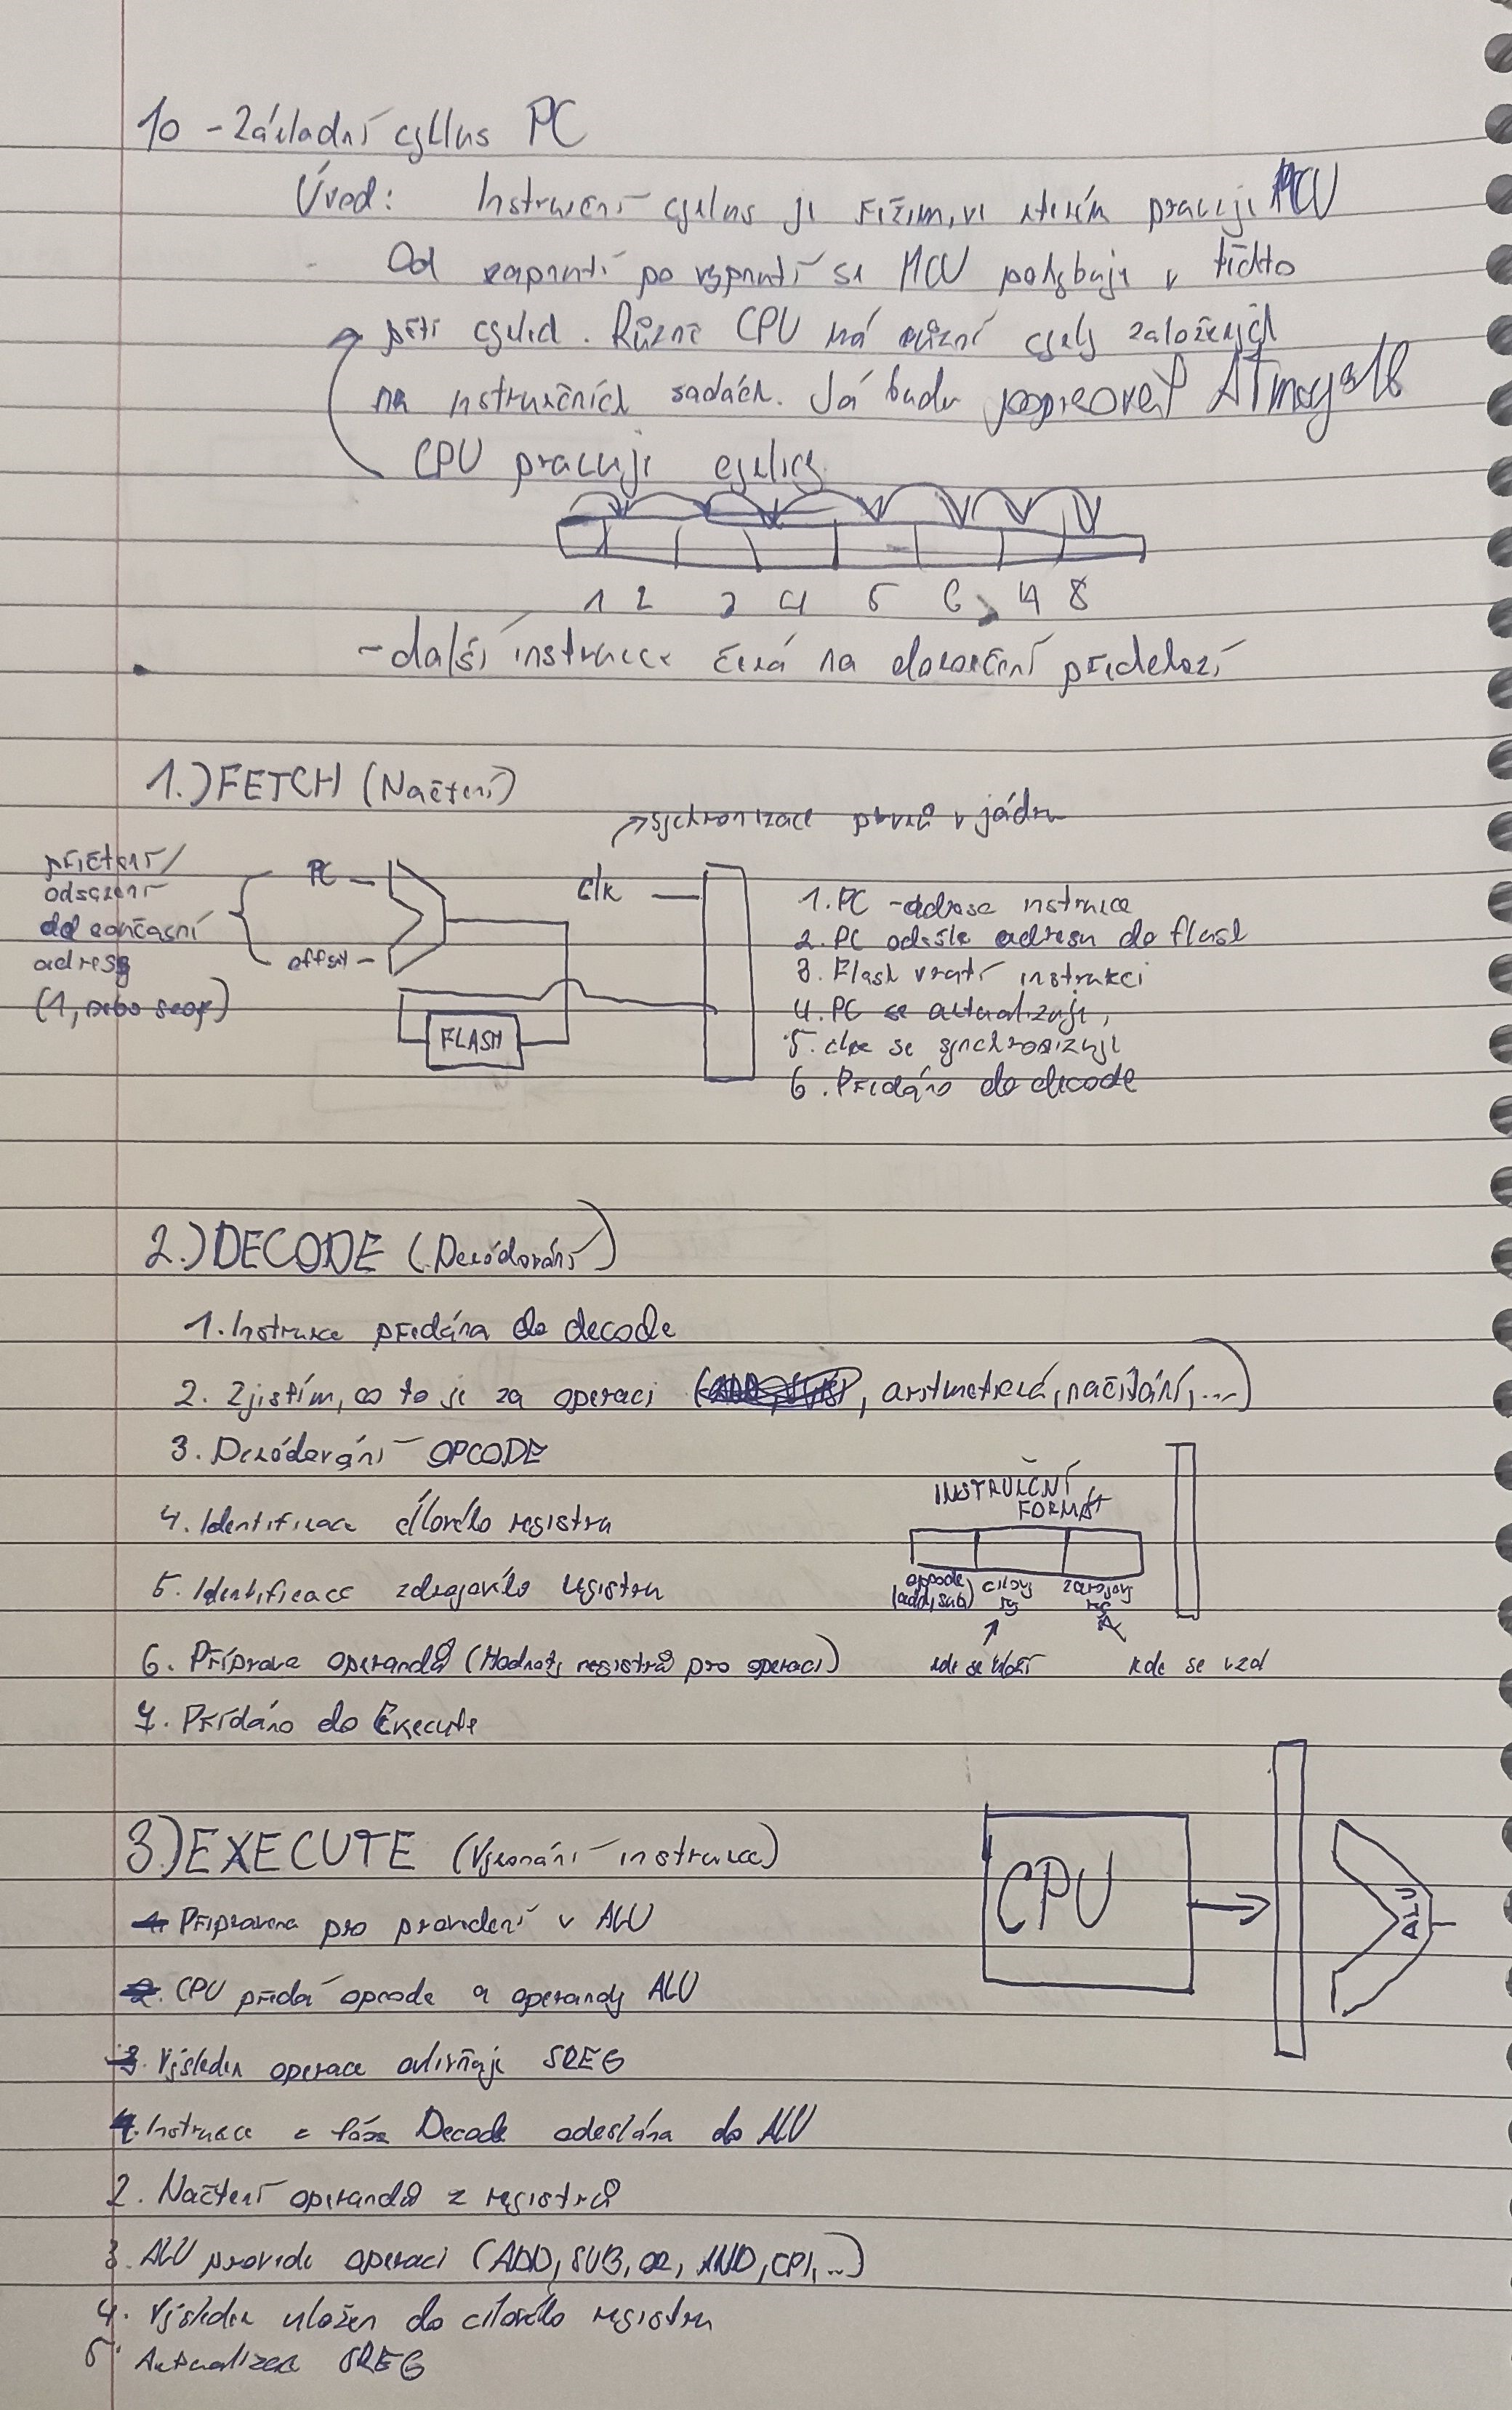 10 - Základní cyklus PC
Úvod: Instrukční cyklus je režim, ve kterém pracuje MCU
Od zapnutí po vypnutí se MCU pohybuje v těchto
pěti cyklech. Různé CPU má různé cykly založených
na instrukčních sadách. Já budu popisovat ATmega16
CPU pracuje cyklicky
1 2 3 4 5 6 7 8
- další instrukce čeká na dokončení předchozí
1.) FETCH (Načtení)
→ sychronizace prvků v jádru
přičtení/
odečtení
od současné
adresy
(1, nebo skok)
PC
offset
FLASH
clk
1. PC - adresa instrukce
2. PC odešle adresu do flash
3. Flash vrátí instrukci
4. PC se aktualizuje,
5. clk se synchronizuje
6. Předáno do decode
2.) DECODE (Dekódování)
1. Instrukce předána do decode
2. Zjistím, co to je za operaci (, aritmetická, načítání, ...)
3. Dekódování OPCODE
4. Identifikace cílového registru
5. Identifikace zdrojového registru
6. Příprava operandů (Hodnoty registrů pro operaci)
7. Předáno do Execute
INSTRUKČNÍ
FORMÁT
opcode
(add, sub)
cílový
rg
zdrojový
rg
kde se uloží
kde se vzal
3.) EXECUTE (Vykonání instrukce)
1. Připravena pro provedení v ALU
2. CPU předá opcode a operandy ALU
3. Výsledek operace ovlivňuje SREG
1. Instrukce z fáze Decode odeslána do ALU
2. Načtení operandů z registrů
3. ALU provede operaci (ADD, SUB, OR, AND, CPI, ..)
4. Výsledek uložen do cílového registru
5. Aktualizace SREG
CPU
ALU